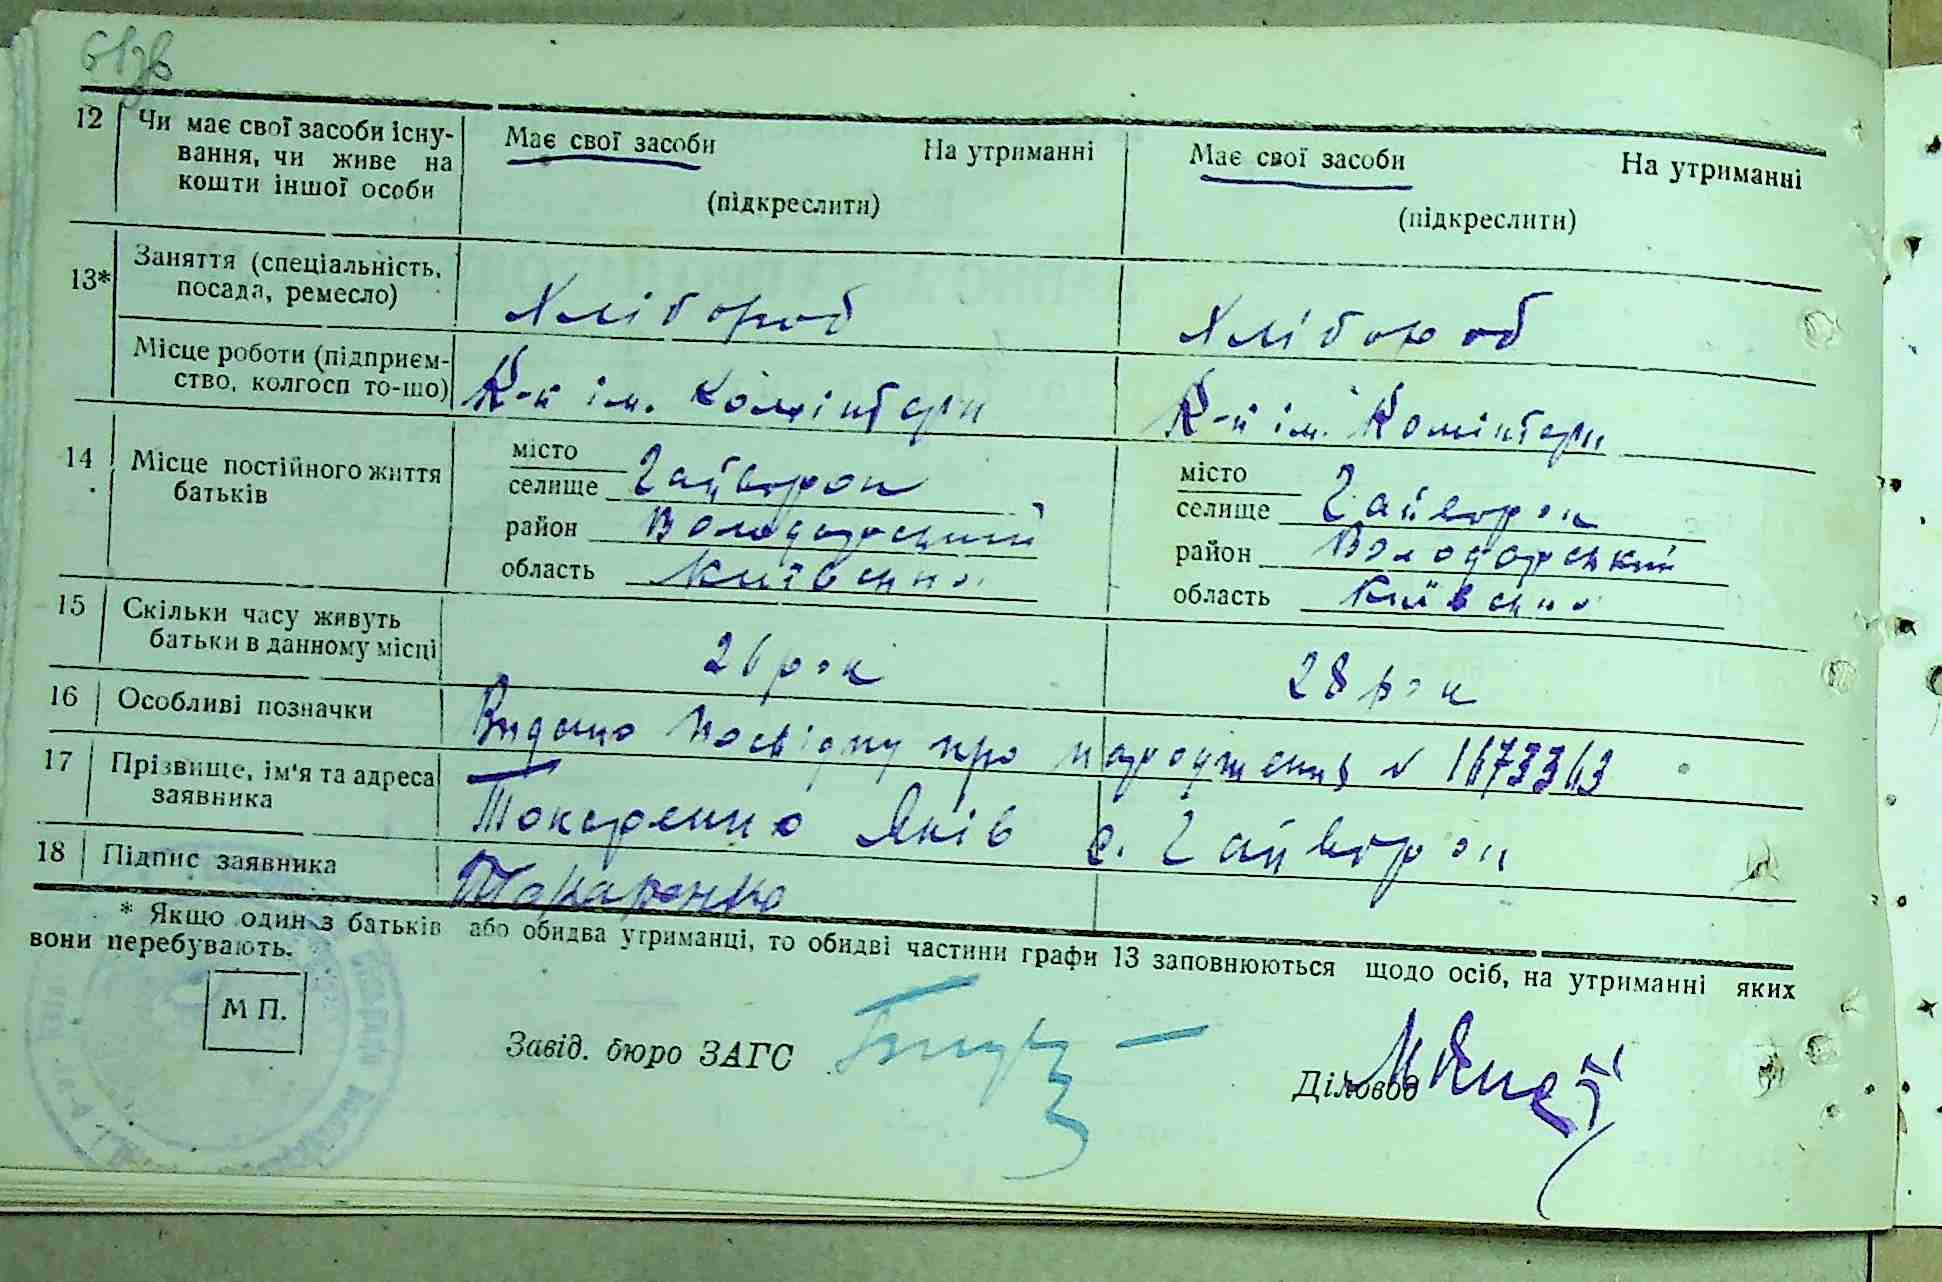 61зв
12 Чи має свої засоби існу-
вання, чи живе на
кошти іншої особи
Має свої засоби На утриманні
(підкреслити)
Має свої засоби На утриманні
(підкреслити)
13* Заняття (спеціальність,
посада, ремесло)
Хлібороб
Хлібороб
Місце роботи (підприєм-
ство, колгосп то-що)
К-п ім. Комінтерн
К-п ім. Комінтерн
14 Місце постійного життя
батьків
місто
селище Гайворон
район Володарський
область Київська
місто
селище Гайворон
район Володарський
область Київська
15 Скільки часу живуть
батьки в данному місці
26 рок
28 рок
16 Особливі позначки
Видано посвідку про народження № 1673363
17 Прізвище, ім'я та адреса
заявника
Токаренко Яків с. Гайворон
18 Підпис заявника
Токаренко
* Якщо один з батьків або обидва утриманці, то обидві частини графи 13 заповнюються щодо осіб, на утриманні яких
вони перебувають.
М П.
Завід. бюро ЗАГС
Діловод